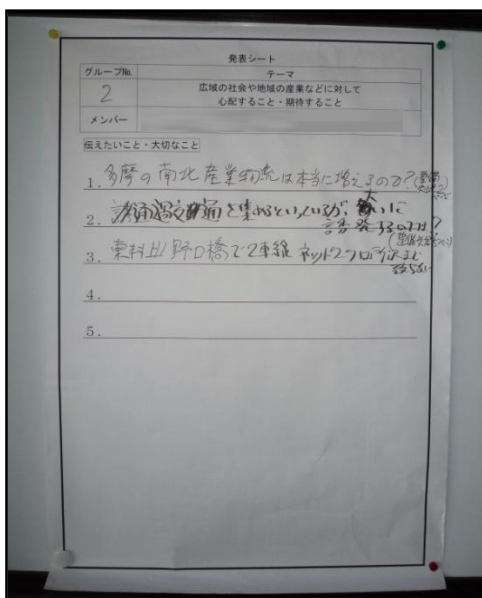 発表シート
グループNo.
テーマ
2
広域の社会や地域の産業などに対して
心配すること・期待すること
メンバー
伝えたいこと・大切なこと
1. 多摩の南北産業物流は本当に増えるのか?(整備
2. 通過交通を集めるといっているが、大いに
誘発するのでは?
3. 東村山 野口橋で2車線 ネットワーク
4.
5.